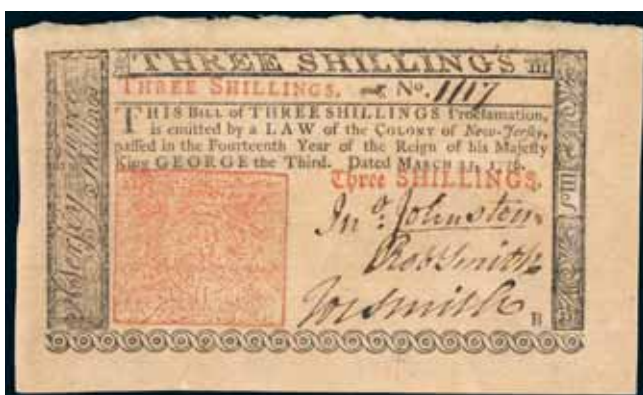 THREE SHILLINGS III
THREE SHILLINGS. No. 1117
THIS BILL of THREE SHILLINGS Proclamation,
is emitted by a LAW of the COLONY of New-Jersey,
passed in the Fourteenth Year of the Reign of his Majesty
King GEORGE the Third. Dated MARCH 25, 1776.
Three SHILLINGS.
Jno. Johnston
Rob Smith
Jos Smith
B
Shillings
IIIs